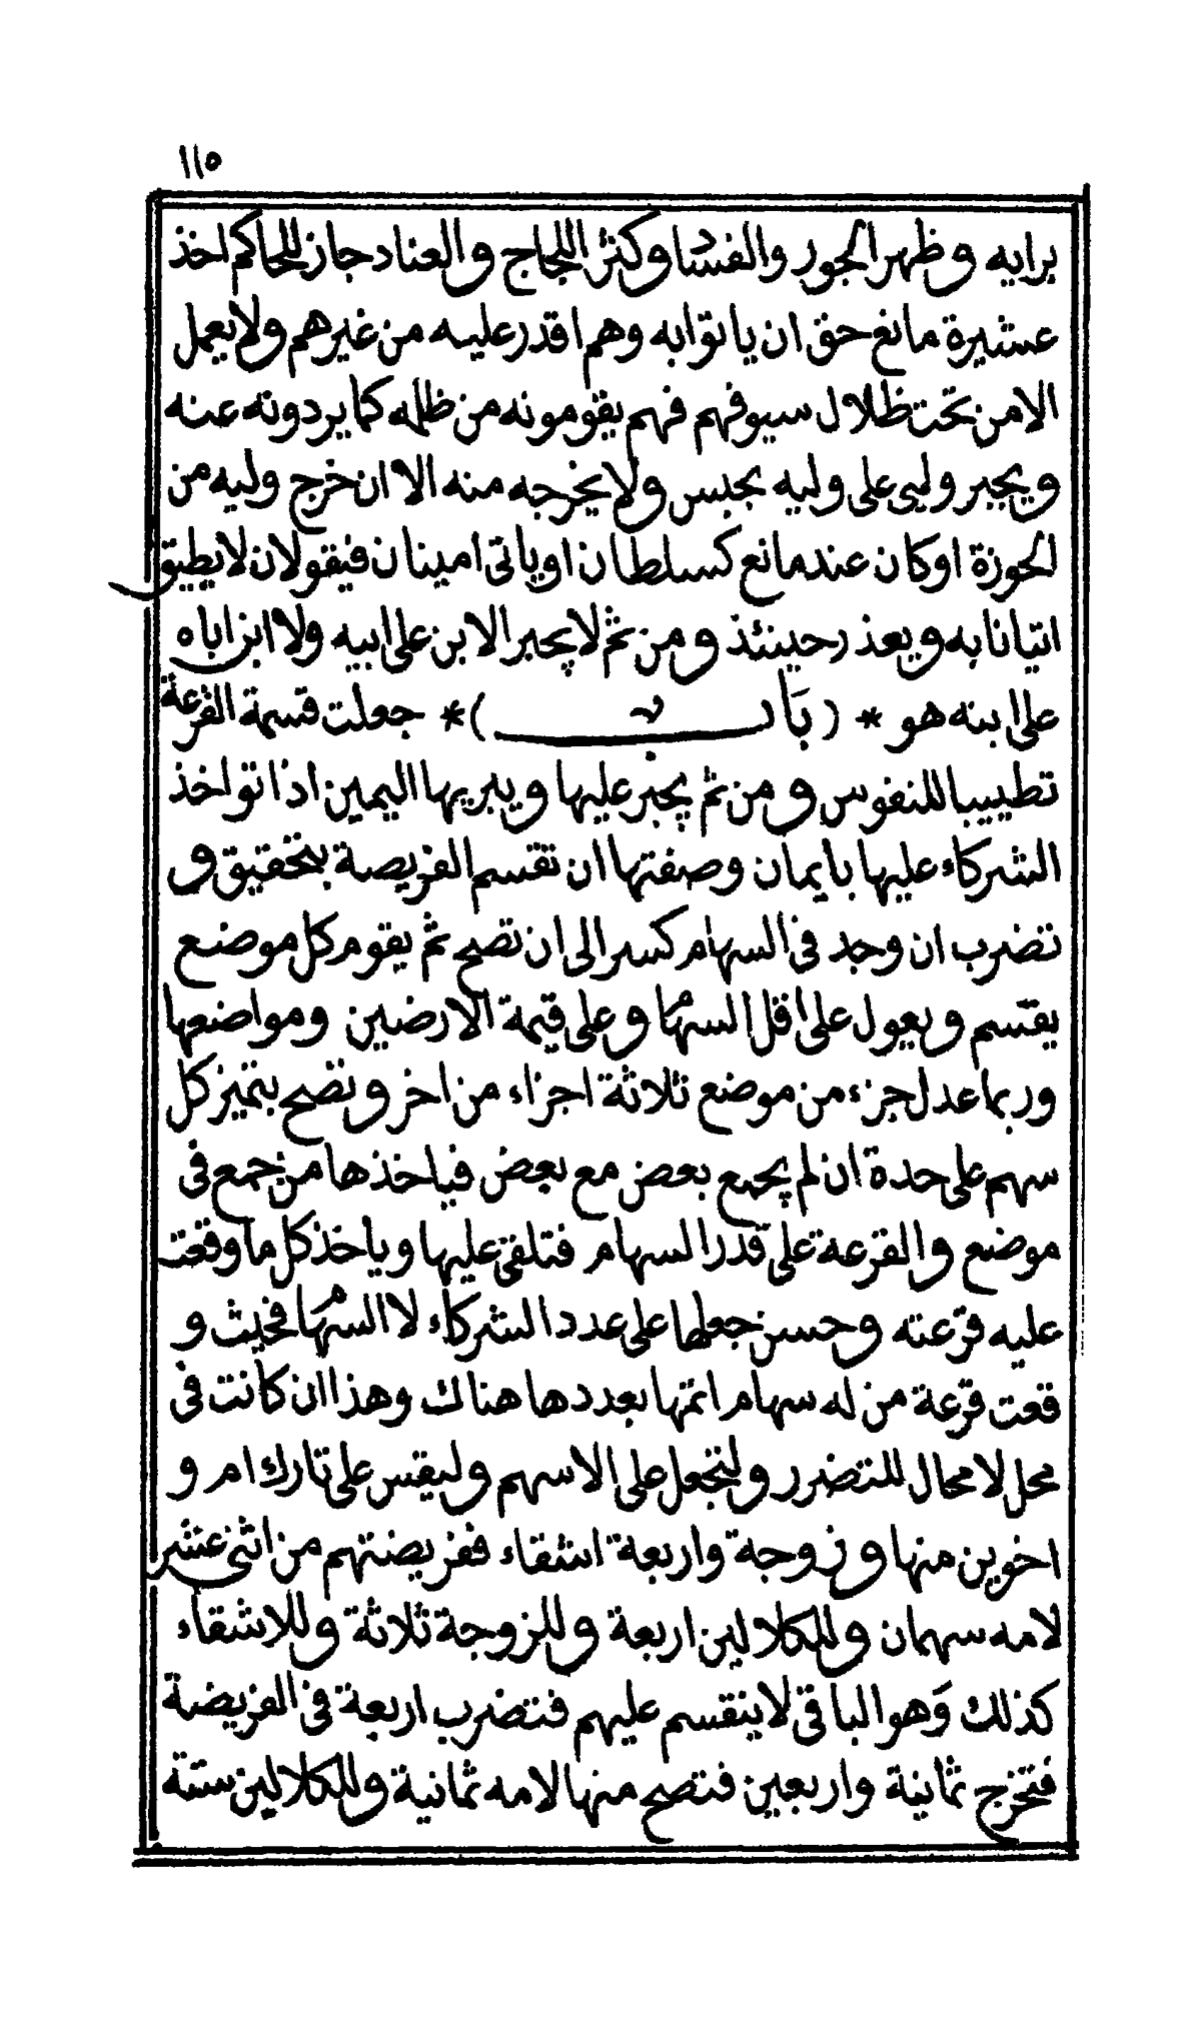 ١١٥
برايه وظهر الجور والفساد وكثر اللجاج والعناد جاز للحاكم اخذ
عشيرة مانع حق ان ياتوا به وهم اقدر عليه من غيرهم ولا يعمل
الامن تحت ظلال سيوفهم فهم يقومونه من ظلمه كما يردونه عنه
ويجبر ولي على وليه بحبس ولا يخرجه منه الا ان خرج وليه من
الحوزة او كان عند مانع كسلطان او ياتى امينان فيقولان لا يطيق
اتيانا به ويعذر حينئذ ومن ثم لا يجبر الابن على ابيه ولا ابن اباه
على ابنه هو * (باب) * جعلت قسمة القرعة
تطييبا للنفوس ومن ثم يجبر عليها ويبريها اليمين اذا تواخذ
الشركاء عليها بايمان وصفتها ان تقسم الفريضة بتحقيق و
تضرب ان وجد فى السهام كسر الى ان تصح ثم يقوم كل موضع
يقسم ويعول على اقل السهام وعلى قيمة الارضين ومواضعها
وربما عدل جزء من موضع ثلاثة اجزاء من اخر وتصح بتميز كل
سهم على حدة ان لم يجمع بعض مع بعض فياخذها من جمع فى
موضع والقرعة على قدر السهام فتلقى عليها وياخذ كل ما وقعت
عليه قرعته وحسن جعلها على عدد الشركاء لا السهام فحيث و
قعت قرعة من له سهام اتمها بعددها هناك وهذا ان كانت فى
محل لا محال للتضرر ولتجعل على الاسهم وليقس على تارك ام و
اخوين منها وزوجة واربعة اشقاء ففريضتهم من اثنى عشر
لامه سهمان وللكلالين اربعة وللزوجة ثلاثة وللاشقاء
كذلك وهو الباقى لا ينقسم عليهم فتضرب اربعة فى الفريضة
فتخرج ثمانية واربعين فتصح منها لامه ثمانية وللكلالين ستة